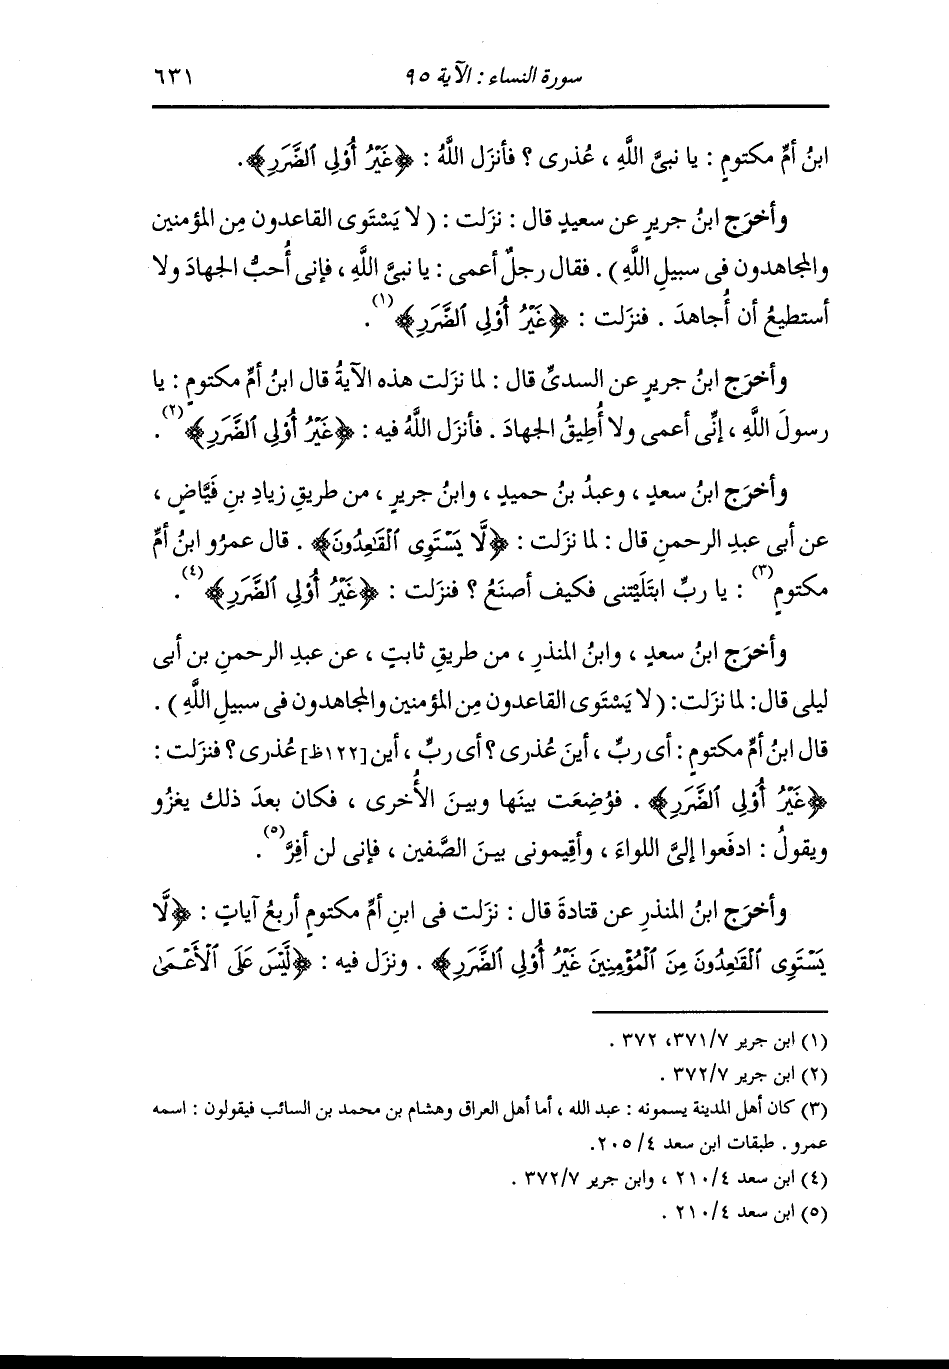 سورة النساء : الآية ٩٥ ٦٣١
ابنُ أمِّ مكتومٍ : يا نبىَّ اللَّهِ ، عُذرى ؟ فأنزَل اللَّهُ : ﴿غَيْرُ أُوْلِى ٱلضَّرَرِ﴾.
وأخرَج ابنُ جريرٍ عن سعيدٍ قال : نزَلت : ( لا يَسْتَوى القاعدون مِن المؤمنين
والمجاهدون فى سبيلِ اللَّهِ ) . فقال رجلٌ أعمى : يا نبىَّ اللَّهِ ، فإنى أُحبُّ الجهادَ ولا
أستطيعُ أن أُجاهدَ . فنزَلت : ﴿غَيْرُ أُوْلِى ٱلضَّرَرِ﴾(١) .
وأخرَج ابنُ جريرٍ عن السدىِّ قال : لما نزَلت هذه الآيةُ قال ابنُ أمِّ مكتومٍ : يا
رسولَ اللَّهِ ، إنِّى أعمى ولا أُطِيقُ الجهادَ . فأنزَل اللَّهُ فيه : ﴿غَيْرُ أُوْلِى ٱلضَّرَرِ﴾(٢) .
وأخرَج ابنُ سعدٍ ، وعبدُ بنُ حميدٍ ، وابنُ جريرٍ ، من طريقِ زيادِ بنِ فَيَّاضٍ ،
عن أبى عبدِ الرحمنِ قال : لما نزَلت : ﴿لَّا يَسْتَوِى ٱلْقَٰعِدُونَ﴾ . قال عمرُو ابنُ أمِّ
مكتومٍ(٣) : يا ربِّ ابتَلَيْتنى فكيف أصنَعُ ؟ فنزَلت : ﴿غَيْرُ أُوْلِى ٱلضَّرَرِ﴾(٤) .
وأخرَج ابنُ سعدٍ ، وابنُ المنذرِ ، من طريقِ ثابتٍ ، عن عبدِ الرحمنِ بن أبى
ليلى قال: لما نزَلت: ( لا يَسْتَوى القاعدون مِن المؤمنين والمجاهدون فى سبيلِ اللَّهِ ) .
قال ابنُ أمِّ مكتومٍ : أى ربِّ ، أينَ عُذرى ؟ أى ربِّ ، أين [١٢٢ظ] عُذرى ؟ فنزَلت :
﴿غَيْرُ أُوْلِى ٱلضَّرَرِ﴾ . فوُضِعَت بينَها وبينَ الأُخرى ، فكان بعدَ ذلك يغزُو
ويقولُ : ادفَعوا إلىَّ اللواءَ ، وأقِيمونى بينَ الصَّفين ، فإنى لن أفِرَّ(٥) .
وأخرَج ابنُ المنذرِ عن قتادةَ قال : نزَلت فى ابنِ أمِّ مكتومٍ أربعُ آياتٍ : ﴿لَّا
يَسْتَوِى ٱلْقَٰعِدُونَ مِنَ ٱلْمُؤْمِنِينَ غَيْرُ أُوْلِى ٱلضَّرَرِ﴾ . ونزَل فيه : ﴿لَّيْسَ عَلَى ٱلْأَعْمَىٰ
(١) ابن جرير ٣٧١/٧، ٣٧٢ .
(٢) ابن جرير ٣٧٢/٧ .
(٣) كان أهل المدينة يسمونه : عبد الله ، أما أهل العراق وهشام بن محمد بن السائب فيقولون : اسمه
عمرو . طبقات ابن سعد ٢٠٥/٤.
(٤) ابن سعد ٢١٠/٤ ، وابن جرير ٣٧٢/٧ .
(٥) ابن سعد ٢١٠/٤ .